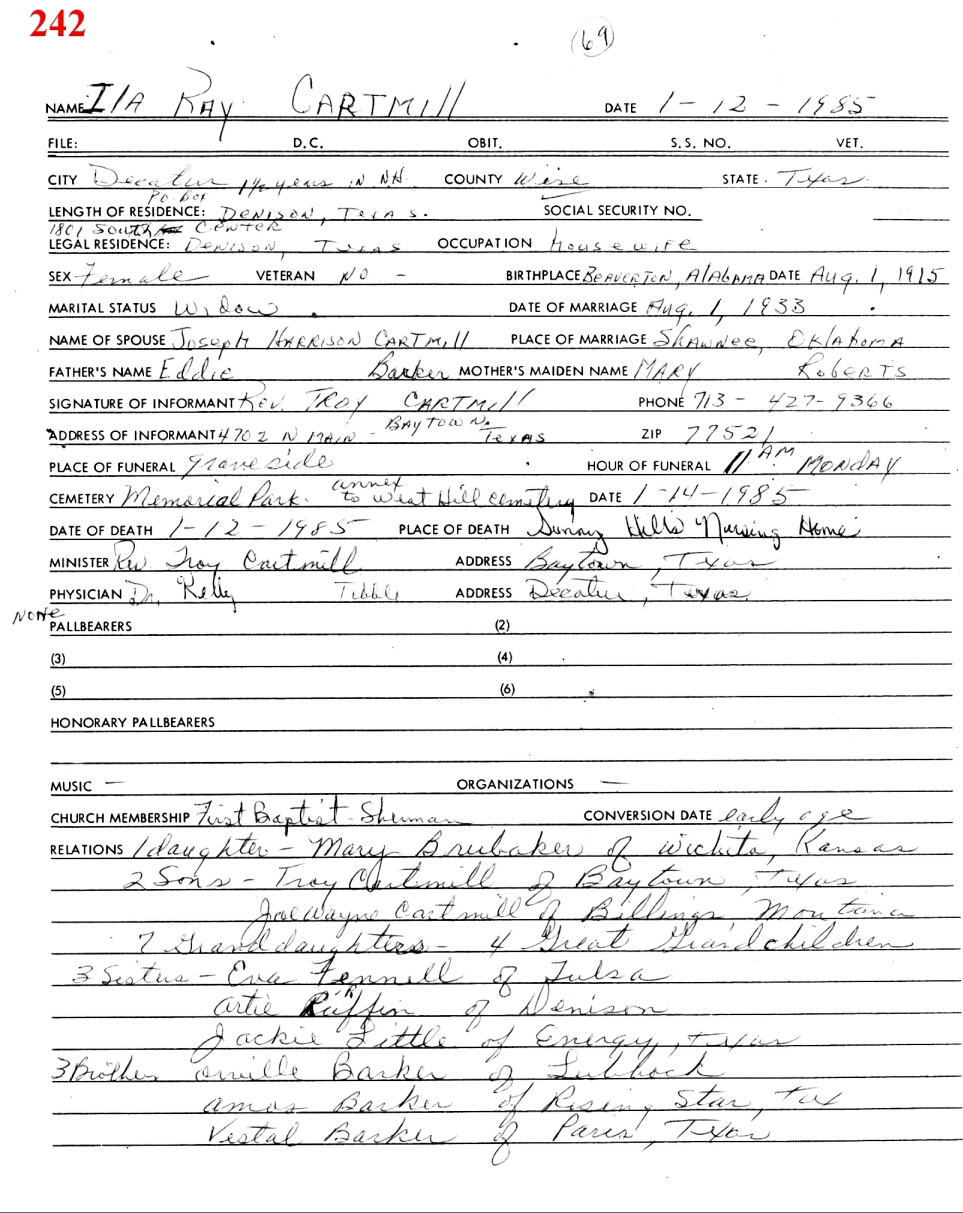 242
(69)
NAME Ila Ray CARTMill DATE 1-12-1985
FILE: D.C. OBIT. S.S. NO. VET.
CITY Decatur 1½ years in N.H. COUNTY Wise STATE. Texas.
P.O. Box
LENGTH OF RESIDENCE: DENISON, TEXAS. SOCIAL SECURITY NO.
1801 South CENTER
LEGAL RESIDENCE: DENISON, Texas OCCUPATION housewife
SEX Female VETERAN NO - BIRTHPLACE BEAVERTON, AlABAMA DATE Aug. 1, 1915
MARITAL STATUS Widow. DATE OF MARRIAGE Aug. 1, 1933
NAME OF SPOUSE Joseph HARRISON CARTMill PLACE OF MARRIAGE Shawnee, OKlahoma
FATHER'S NAME Eddie Barker MOTHER'S MAIDEN NAME MARY RobERTS
SIGNATURE OF INFORMANT Rev. TROY CARTMill PHONE 713-427-9366
ADDRESS OF INFORMANT 4702 N MAIN - BAYTOWN, TEXAS ZIP 77521
PLACE OF FUNERAL graveside HOUR OF FUNERAL 11 AM. MONDAY
CEMETERY Memorial Park. annex to West Hill cemetery DATE 1-14-1985
DATE OF DEATH 1-12-1985 PLACE OF DEATH Sunny Hills Nursing Home
MINISTER Rev Troy Cartmill ADDRESS Baytown, Texas
PHYSICIAN Dr. Kelly ADDRESS Decatur, Texas
NONE
PALLBEARERS (2)
(3) (4)
(5) (6)
HONORARY PALLBEARERS
MUSIC — ORGANIZATIONS —
CHURCH MEMBERSHIP First Baptist - Sherman CONVERSION DATE early age
RELATIONS 1 daughter - Mary Brubaker of Wichita, Kansas
2 Sons - Troy Cartmill of Baytown, Texas
Joe Wayne Cartmill of Billings, Montana
7 Granddaughters - 4 Great Grandchildren
3 Sisters - Eva Fennell of Tulsa
Artie Ruffin of Denison
Jackie Little of Energy, Texas
3 Brother Orville Barker of Lubbock
Amos Barker of Rising Star, Tex
Vestal Barker of Paris, Texas